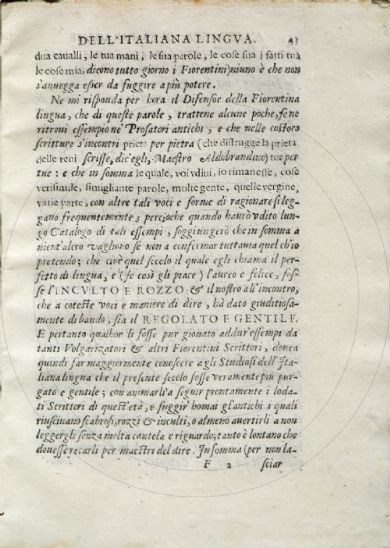 DELL'ITALIANA LINGVA. 43
dua caualli, le tua mani, le sua parole, le cose sua i fatti tua
le cose mia, dicono tutto giorno i Fiorentini) niuno è che non
s'auuegga esser da fuggire a più potere.
Ne mi risponda per hora il Difensor della Fiorentina
lingua, che di queste parole, trattene alcune poche, se ne
ritroui essempio ne' Prosatori antichi; e che nelle costoro
scritture s'incontri prieta per pietra (che distrugge la prieta
delle reni scrisse, dic'egli, Maestro Aldobrandino) tue per
tue: e che in somma le quale, voi vdiui, io rimanesse, cose
verisimile, simigliante parole, multe gente, quelle vergine,
varie parte, con altre tali voci e forme di ragionare si leg-
gano frequentemente; percioche quando haurò vdito lun-
go Catalogo di tali essempi, soggiungerò che in somma a
nient'altro vaghono se non a confermar tuttauia quel ch'io
pretendo; che cioè quel secolo il quale egli chiama il per-
fetto di lingua, e (se così gli piace) l'aureo e felice, fos-
se l'INCVLTO E ROZZO & il nostro all'incontro,
che a coteste voci e maniere di dire, hà dato giuditiosa-
mente di bando, sia il REGOLATO E GENTILE.
E pertanto qualhor li fosse pur giouato addur'essempi da
tanti Volgarizatori & altri Fiorentini Scrittori, douea
quindi far maggiormente conoscere agli Studiosi dell'Ita-
liana lingua che il presente secolo fosse veramente più pur-
gato e gentile; con animarli a seguir prontamente i loda-
ti Scrittori di quest'età, e fuggir homai gl'antichi i quali
riusciuano scabrosi, rozzi & inculti, o almeno auertirli a non
leggergli senza molta cautela e riguardo; tanto è lontano che
douesse recarli per maestri del dire. In somma (per non la-
F 2 sciar